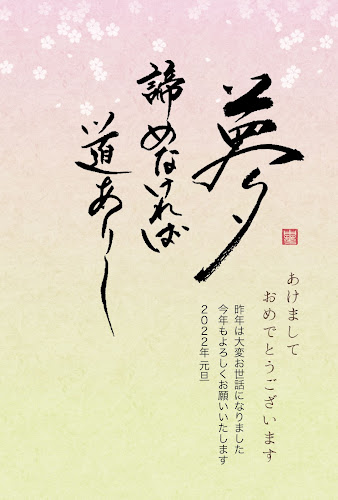 夢
諦めなければ
道ありし
あけまして
おめでとうございます
昨年は大変お世話になりました
今年もよろしくお願いいたします
2022年 元旦